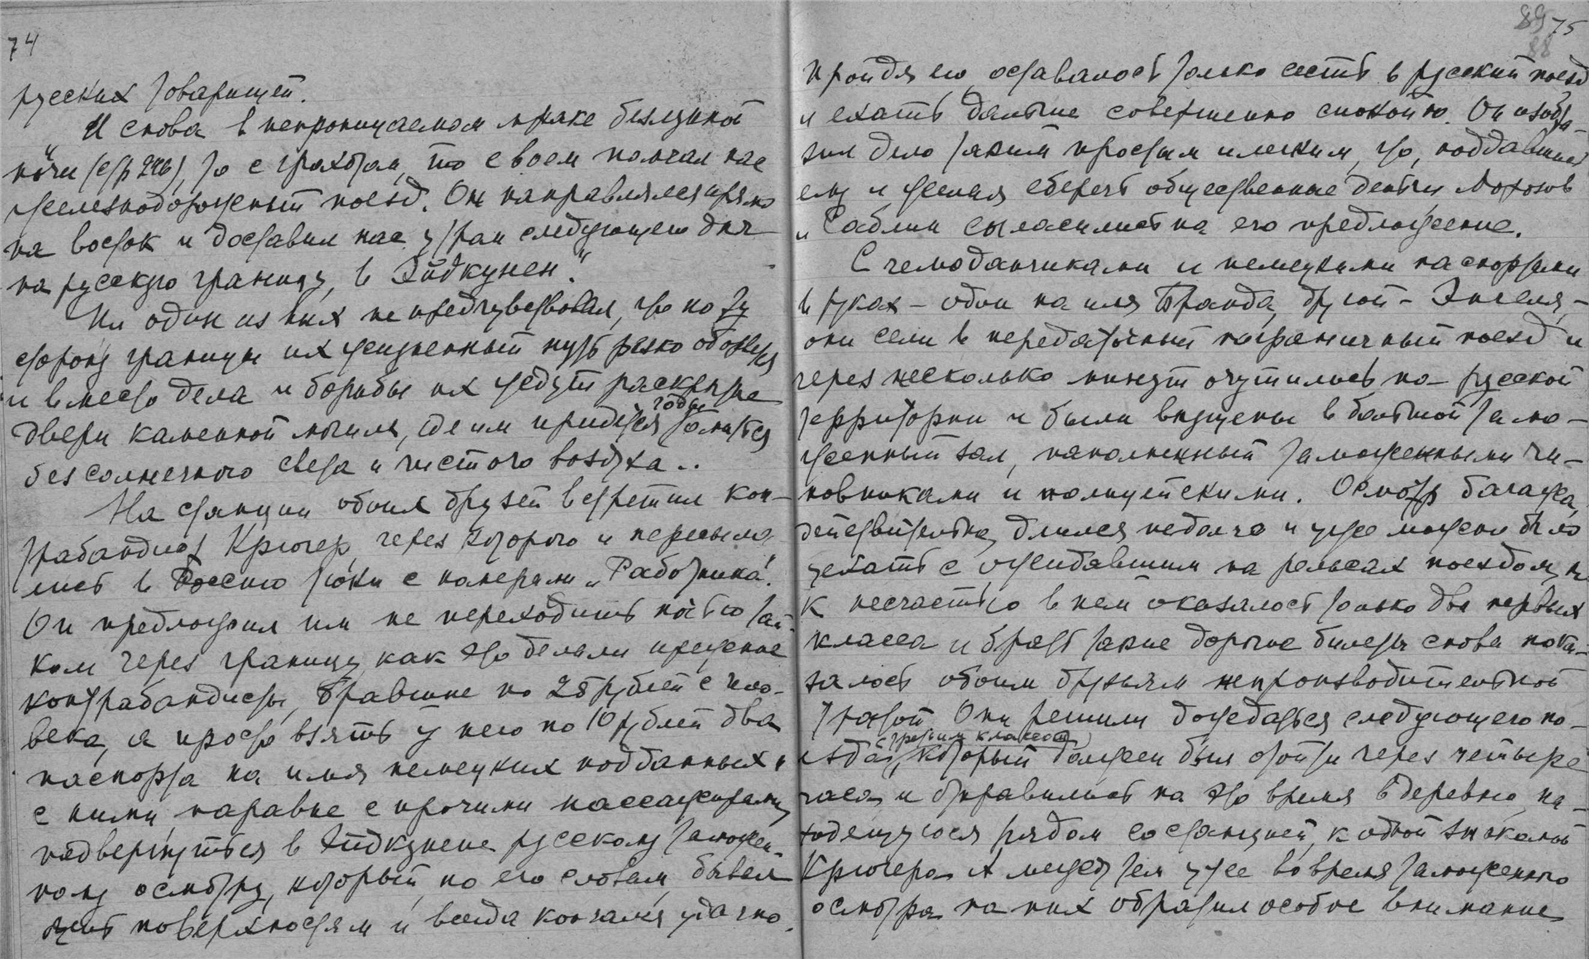 74
русских товарищей.
И снова в непроницаемом мраке безлунной
ночи (стр 246), то с грохотом, то с воем помчал нас
железнодорожный поезд. Он направлялся прямо
на восток и доставил нас утром следующего дня
на русскую границу, в Эйдкунен."
Ни один из них не предчувствовал, что по ту
сторону границы их жизненный путь резко оборвется
и вместо дела и борьбы их ждут раскрытые
двери каменной могилы, где им придется годы томиться
без солнечного света и чистого воздуха..
На станции обоих друзей встретил кон-
трабандист Крюгер, через которого и пересыла-
лись в Россию тюки с номерами „Работника".
Он предложил им не переходить ночью тай-
ком через границу, как это делали прежние
контрабандисты, бравшие по 25 рублей с чело-
века, а просто взять у него по 10 рублей два
паспорта на имя немецких подданных и
с ними наравне с прочими пассажирами
подвергнуться в Эйдкунене русскому таможен-
ному осмотру, который, по его словам, бывал
очень поверхностям и всегда кончался удачно.
89 75
88
Пройдя его оставалось только сесть в русский поезд
и ехать дальше совершенно спокойно. Он изобра-
зил дело таким простым и легким, что, поддавшись
ему и желая сберечь общественные деньги Морозов
и Саблин согласились на его предложение.
С чемоданчиками и немецкими паспортами
в руках – один на имя Бранда, другой – Энгеля, –
они сели в передаточный пограничный поезд и
через несколько минут очутились на русской
территории и были впущены в большой тамо-
женный зал, наполненный таможенными чи-
новниками и полицейскими. Осмотр багажа,
действительно, длился недолго и уже можно было
уехать с ожидавшим на рельсах поездом, но
к несчастью в нем оказалось только два первых
класса и брать такие дорогие билеты снова пока-
залось обоим друзьям непроизводительной
тратой. Они решили дождаться следующего по-
езда (с третьим классом), который должен был отойти через четыре
часа и отправились на это время в деревню, на-
ходящуюся рядом со станцией, к одной знакомой
Крюгера. А между тем уже во время таможенного
осмотра на них обратил особое внимание